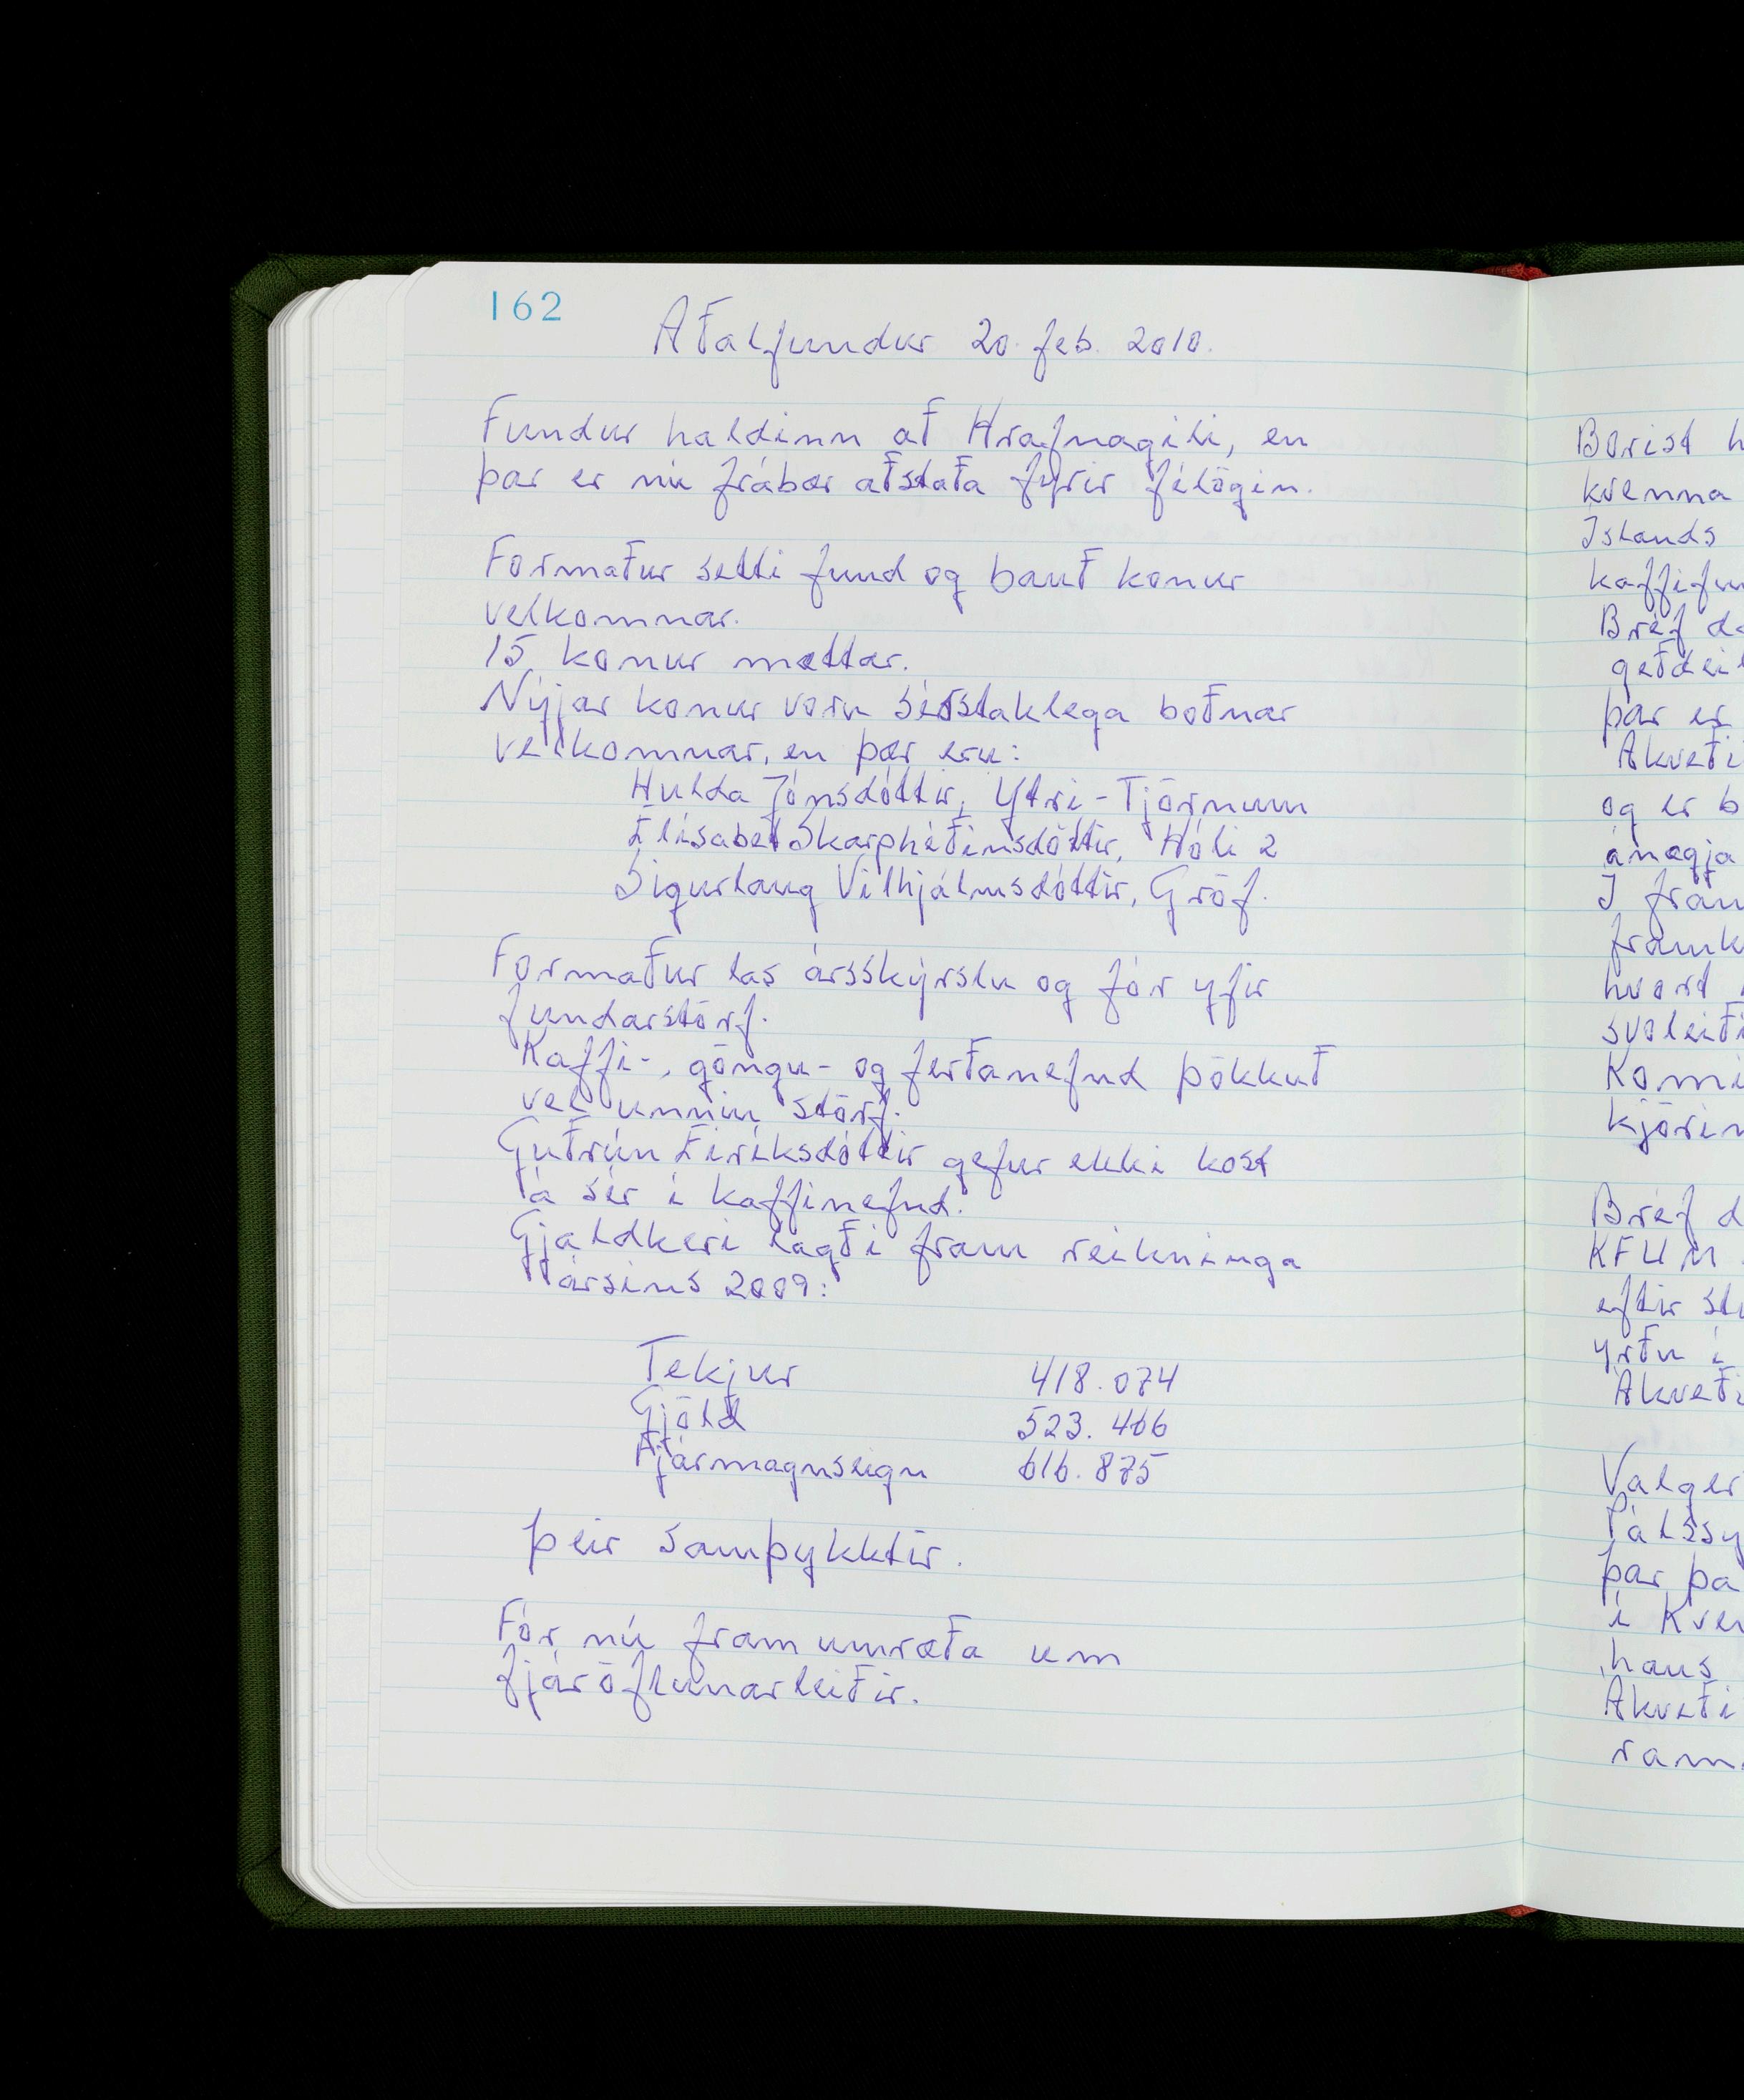 162
Aðalfundur 20. feb. 2010.
Fundur haldinn að Hrafnagili, en
þar er nú frábær aðstaða fyrir félögin.
Formaður setti fund og bauð konur
velkomnar.
15 konur mættar.
Nýjar konur voru sérstaklega boðnar
velkomnar, en þær eru:
Hulda Jónsdóttir, Ytri-Tjörnum
Elísabet Skarphéðinsdóttir, Hóli 2
Sigurlaug Vilhjálmsdóttir, Gröf.
Formaður las ársskýrslu og fór yfir
fundarstörf.
Kaffi-, göngu- og ferðanefnd þökkuð
vel unnin störf.
Guðrún Eiríksdóttir gefur ekki kost
á sér í kaffinefnd.
Gjaldkeri lagði fram reikninga
ársins 2009:
Tekjur 418.074
Gjöld 523.466
Fjármagnseign 616.875
Þeir samþykktir.
Fór nú fram umræða um
fjáröflunarleiðir.
Borist h
kvenna
Islands
kaffifu
Bréf d
geðdei
þar er
Akveði
og er b
ánægja
I fram
framk
hvort
svoleiði
Komi
kjörin
Bréf d
KFUM
eftir st
yrðu í
Akveði
Valger
Pálssy
þar þa
í Kven
haus
Akveði
ram